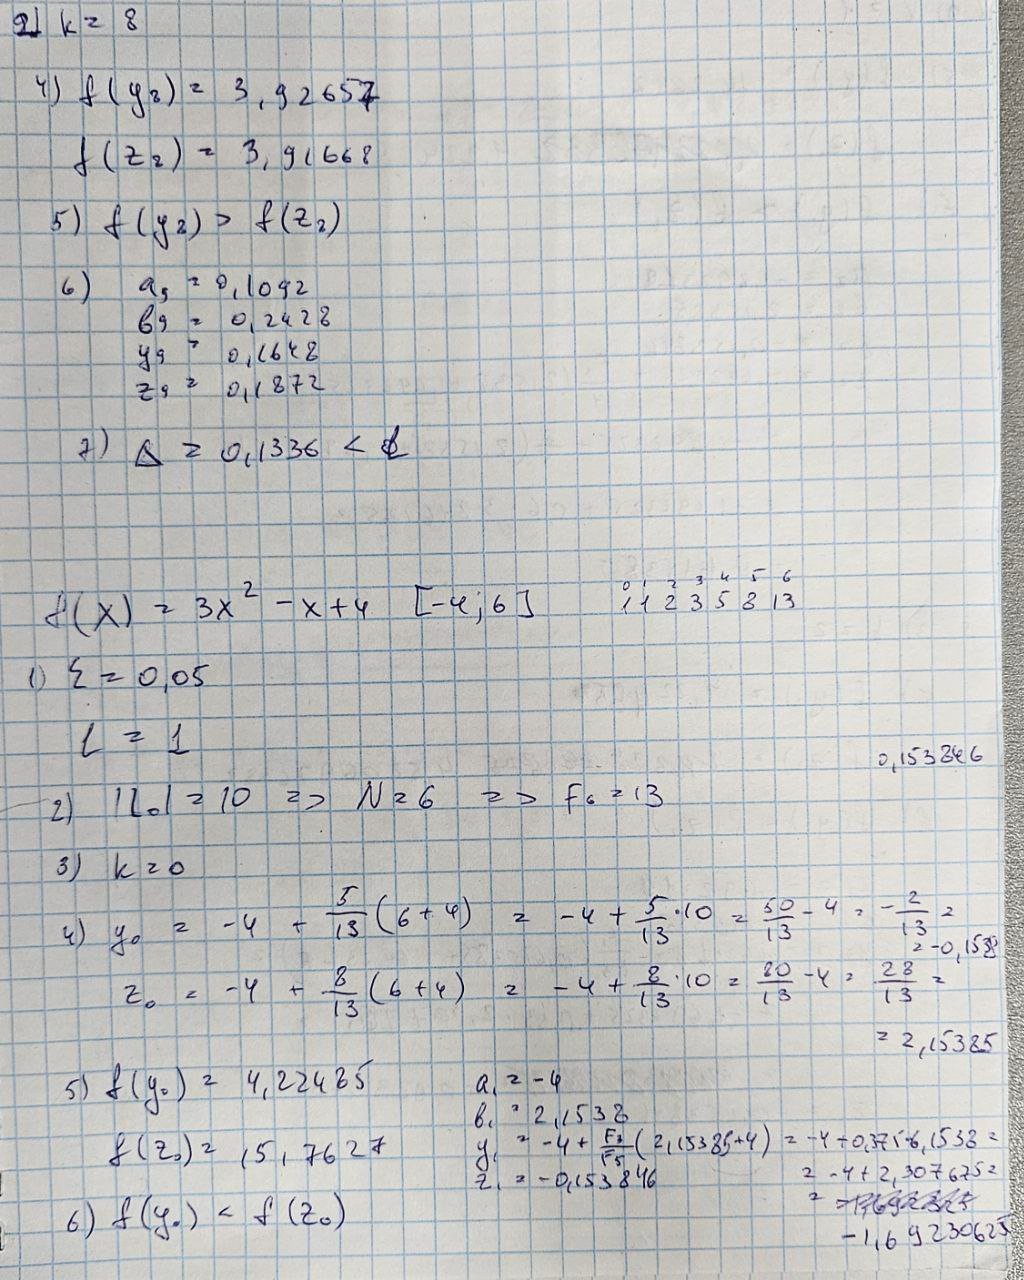 9) k = 8
4) f(y₈) = 3,92657
f(z₈) = 3,91668
5) f(y₈) > f(z₈)
6) a₉ = 0,1092
b₉ = 0,2428
y₉ = 0,1648
z₉ = 0,1872
7) Δ = 0,1336 < l
f(x) = 3x² - x + 4 [-4; 6]
0 1 2 3 4 5 6
1 1 2 3 5 8 13
1) ε = 0,05
l = 1
0,153846
2) |L₀| = 10 => N = 6 => F₆ = 13
3) k = 0
4) y₀ = -4 + 5/13 (6+4) = -4 + 5/13 · 10 = 50/13 - 4 = -2/13 =
= -0,1538
z₀ = -4 + 8/13 (6+4) = -4 + 8/13 · 10 = 80/13 - 4 = 28/13 =
= 2,15385
5) f(y₀) = 4,22485
f(z₀) = 15,7627
6) f(y₀) < f(z₀)
a₁ = -4
b₁ = 2,1538
y₁ = -4 + F₃/F₅ (2,15385+4) = -4 + 0,375·6,1538 =
= -4 + 2,307675 =
z₁ = -0,153846
= -1,69230625